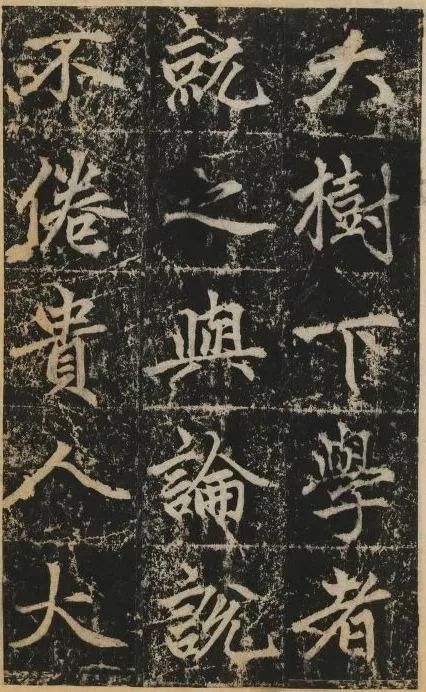 大樹下學者
就之與論說
不倦貴人大